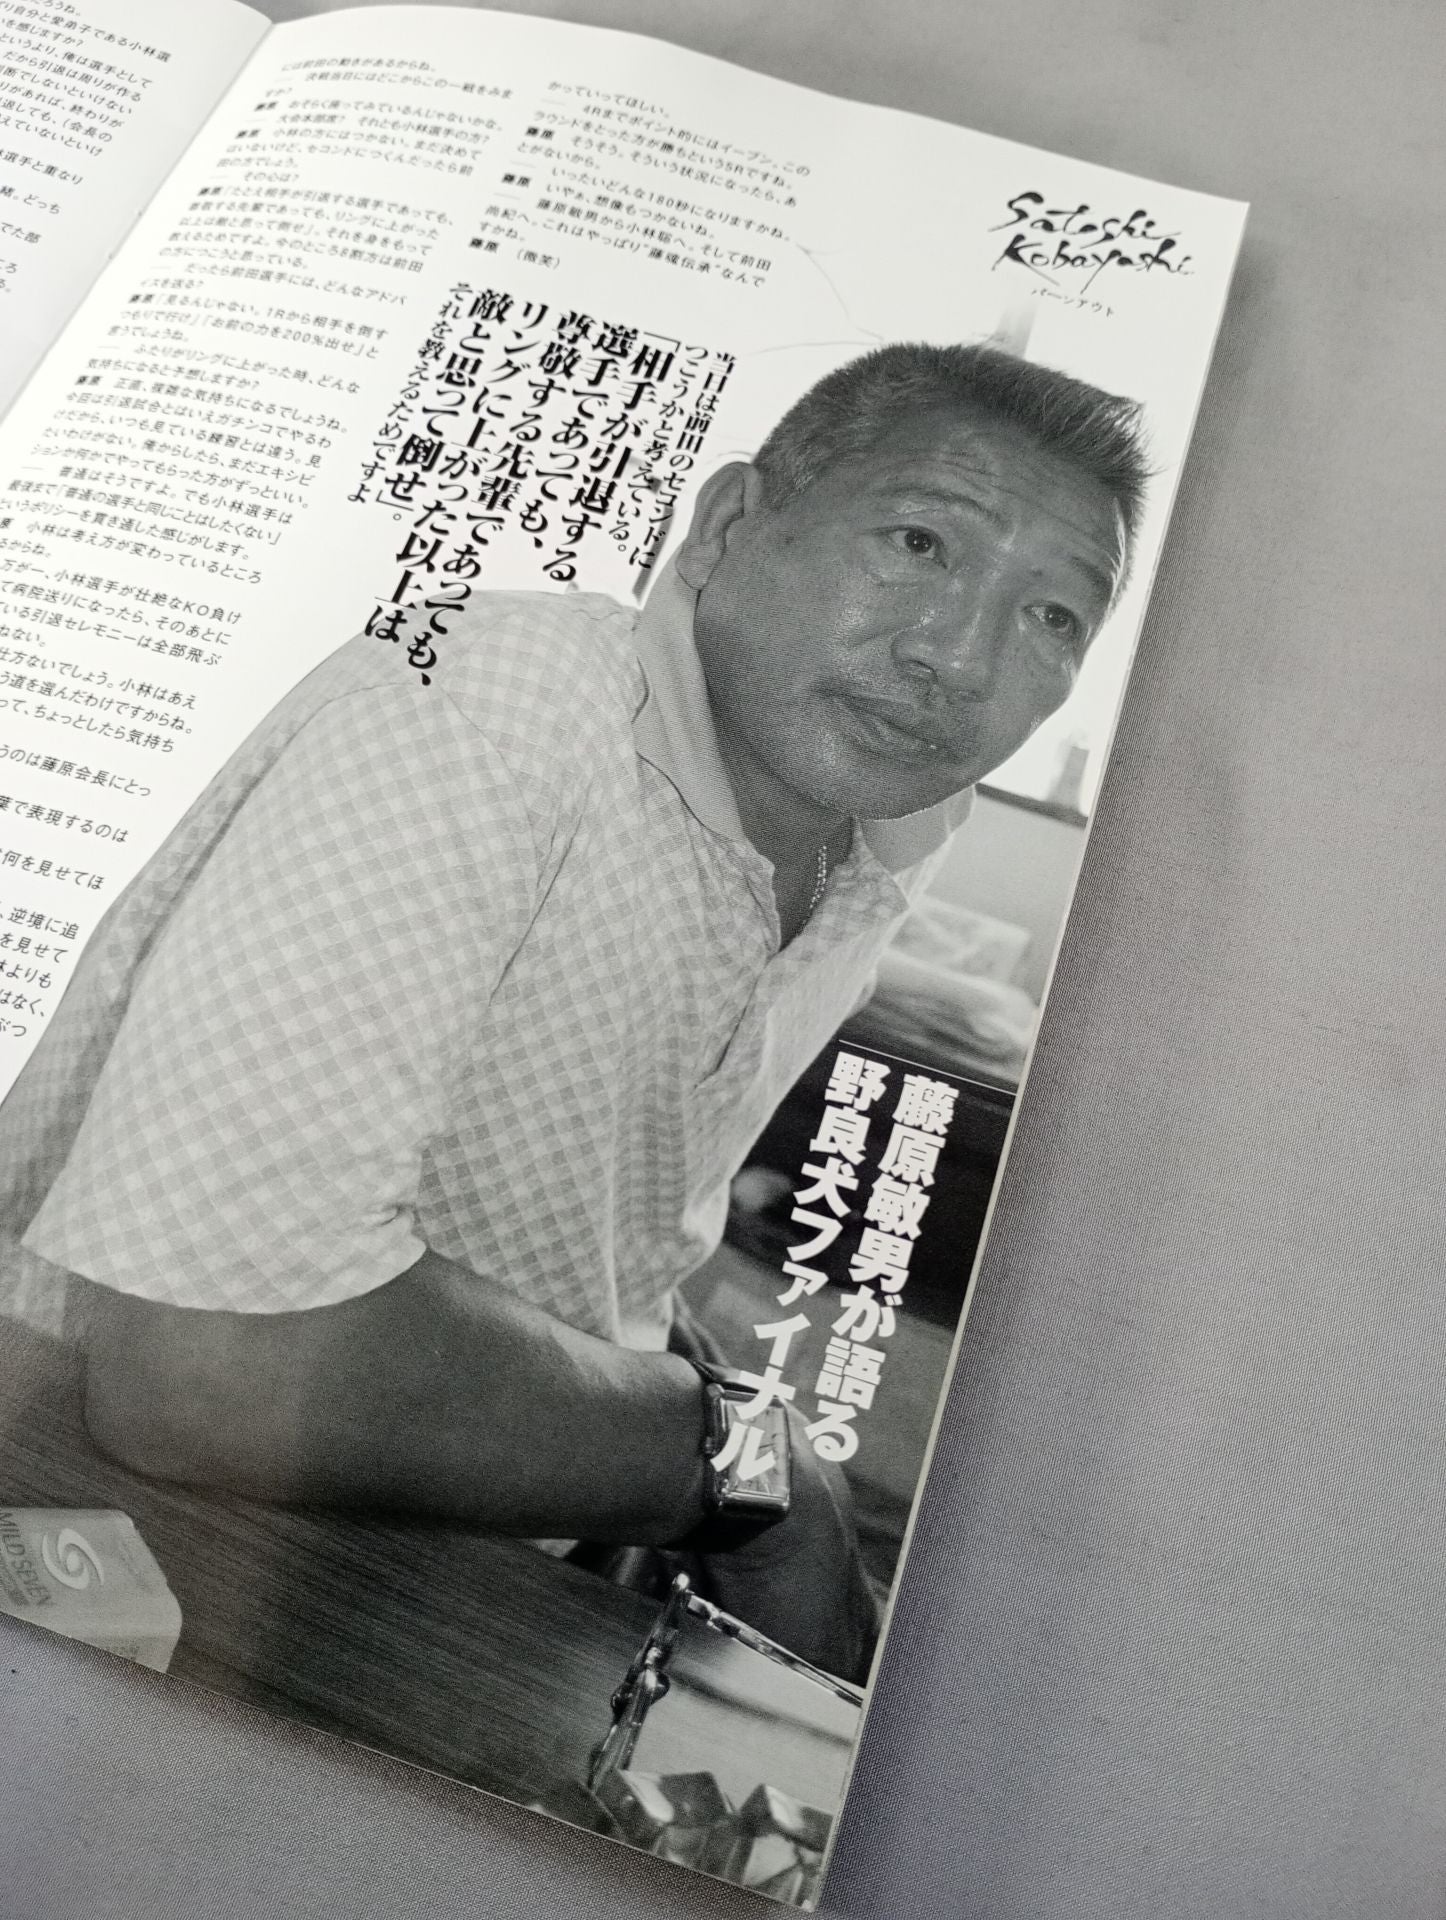 だろうね。
り自分と愛弟子である小林選
を感じますか?
というより、俺は選手として
だから引退は周りが作る
断でしないといけない
りがあれば、終わりが
退しても、(会長の
えていないといけ
選手と重なり
緒。どっち
でた部
ころ
る。
には前田の動きがあるからね。
── 決戦当日にはどこからこの一戦をみますか?
藤原 おそらく座ってみているんじゃないかな。
── 大会本部席? それとも小林選手の方?
藤原 小林の方にはつかない。まだ決めて
はいないけど、セコンドにつくんだったら前
田の方でしょう。
── その心は?
藤原「たとえ相手が引退する選手であっても、
尊敬する先輩であっても、リングに上がった
以上は敵と思って倒せ」。それを身をもって
教えるためですよ。今のところ8割方は前田
の方につこうと思っている。
── だったら前田選手には、どんなアドバ
イスを送る?
藤原「見るんじゃない。1Rから相手を倒す
つもりで行け」「お前の力を200%出せ」と
言うでしょうね。
── ふたりがリングに上がった時、どんな
気持ちになると予想しますか?
藤原 正直、複雑な気持ちになるでしょうね。
今回は引退試合とはいえガチンコでやるわ
けだから、いつも見ている練習とは違う。見
たいわけがない。俺からしたら、まだエキシビ
ションか何かでやってもらった方がずっといい。
── 普通はそうですよ。でも小林選手は
最後まで「普通の選手と同じことはしたくない」
というポリシーを貫き通した感じがします。
原 小林は考え方が変わっているところ
るからね。
万が一、小林選手が壮絶なKO負け
て病院送りになったら、そのあとに
ている引退セレモニーは全部飛ぶ
ねない。
仕方ないでしょう。小林はあえ
う道を選んだわけですからね。
って、ちょっとしたら気持ち
うのは藤原会長にとっ
葉で表現するのは
何を見せてほ
、逆境に追
を見せて
林よりも
はなく、
ぶつ
かっていってほしい。
── 4Rまでポイント的にはイーブン。この
ラウンドをとった方が勝ちという5Rですね。
藤原 そうそう。そういう状況になったら、あ
とがないから。
── いったいどんな180秒になりますかね。
藤原 いやぁ、想像もつかないね。
── 藤原敏男から小林聡へ。そして前田
尚紀へ。これはやっぱり“藤魂伝承”なんで
すかね。
藤原 (微笑)
Satoshi
Kobayashi
バーンアウト
当日は前田のセコンドに
つこうかと考えている。
「相手が引退する
選手であっても、
尊敬する先輩であっても、
リングに上がった以上は
敵と思って倒せ」。
それを教えるためですよ
藤原敏男が語る
野良犬ファイナル
MILD SEVEN